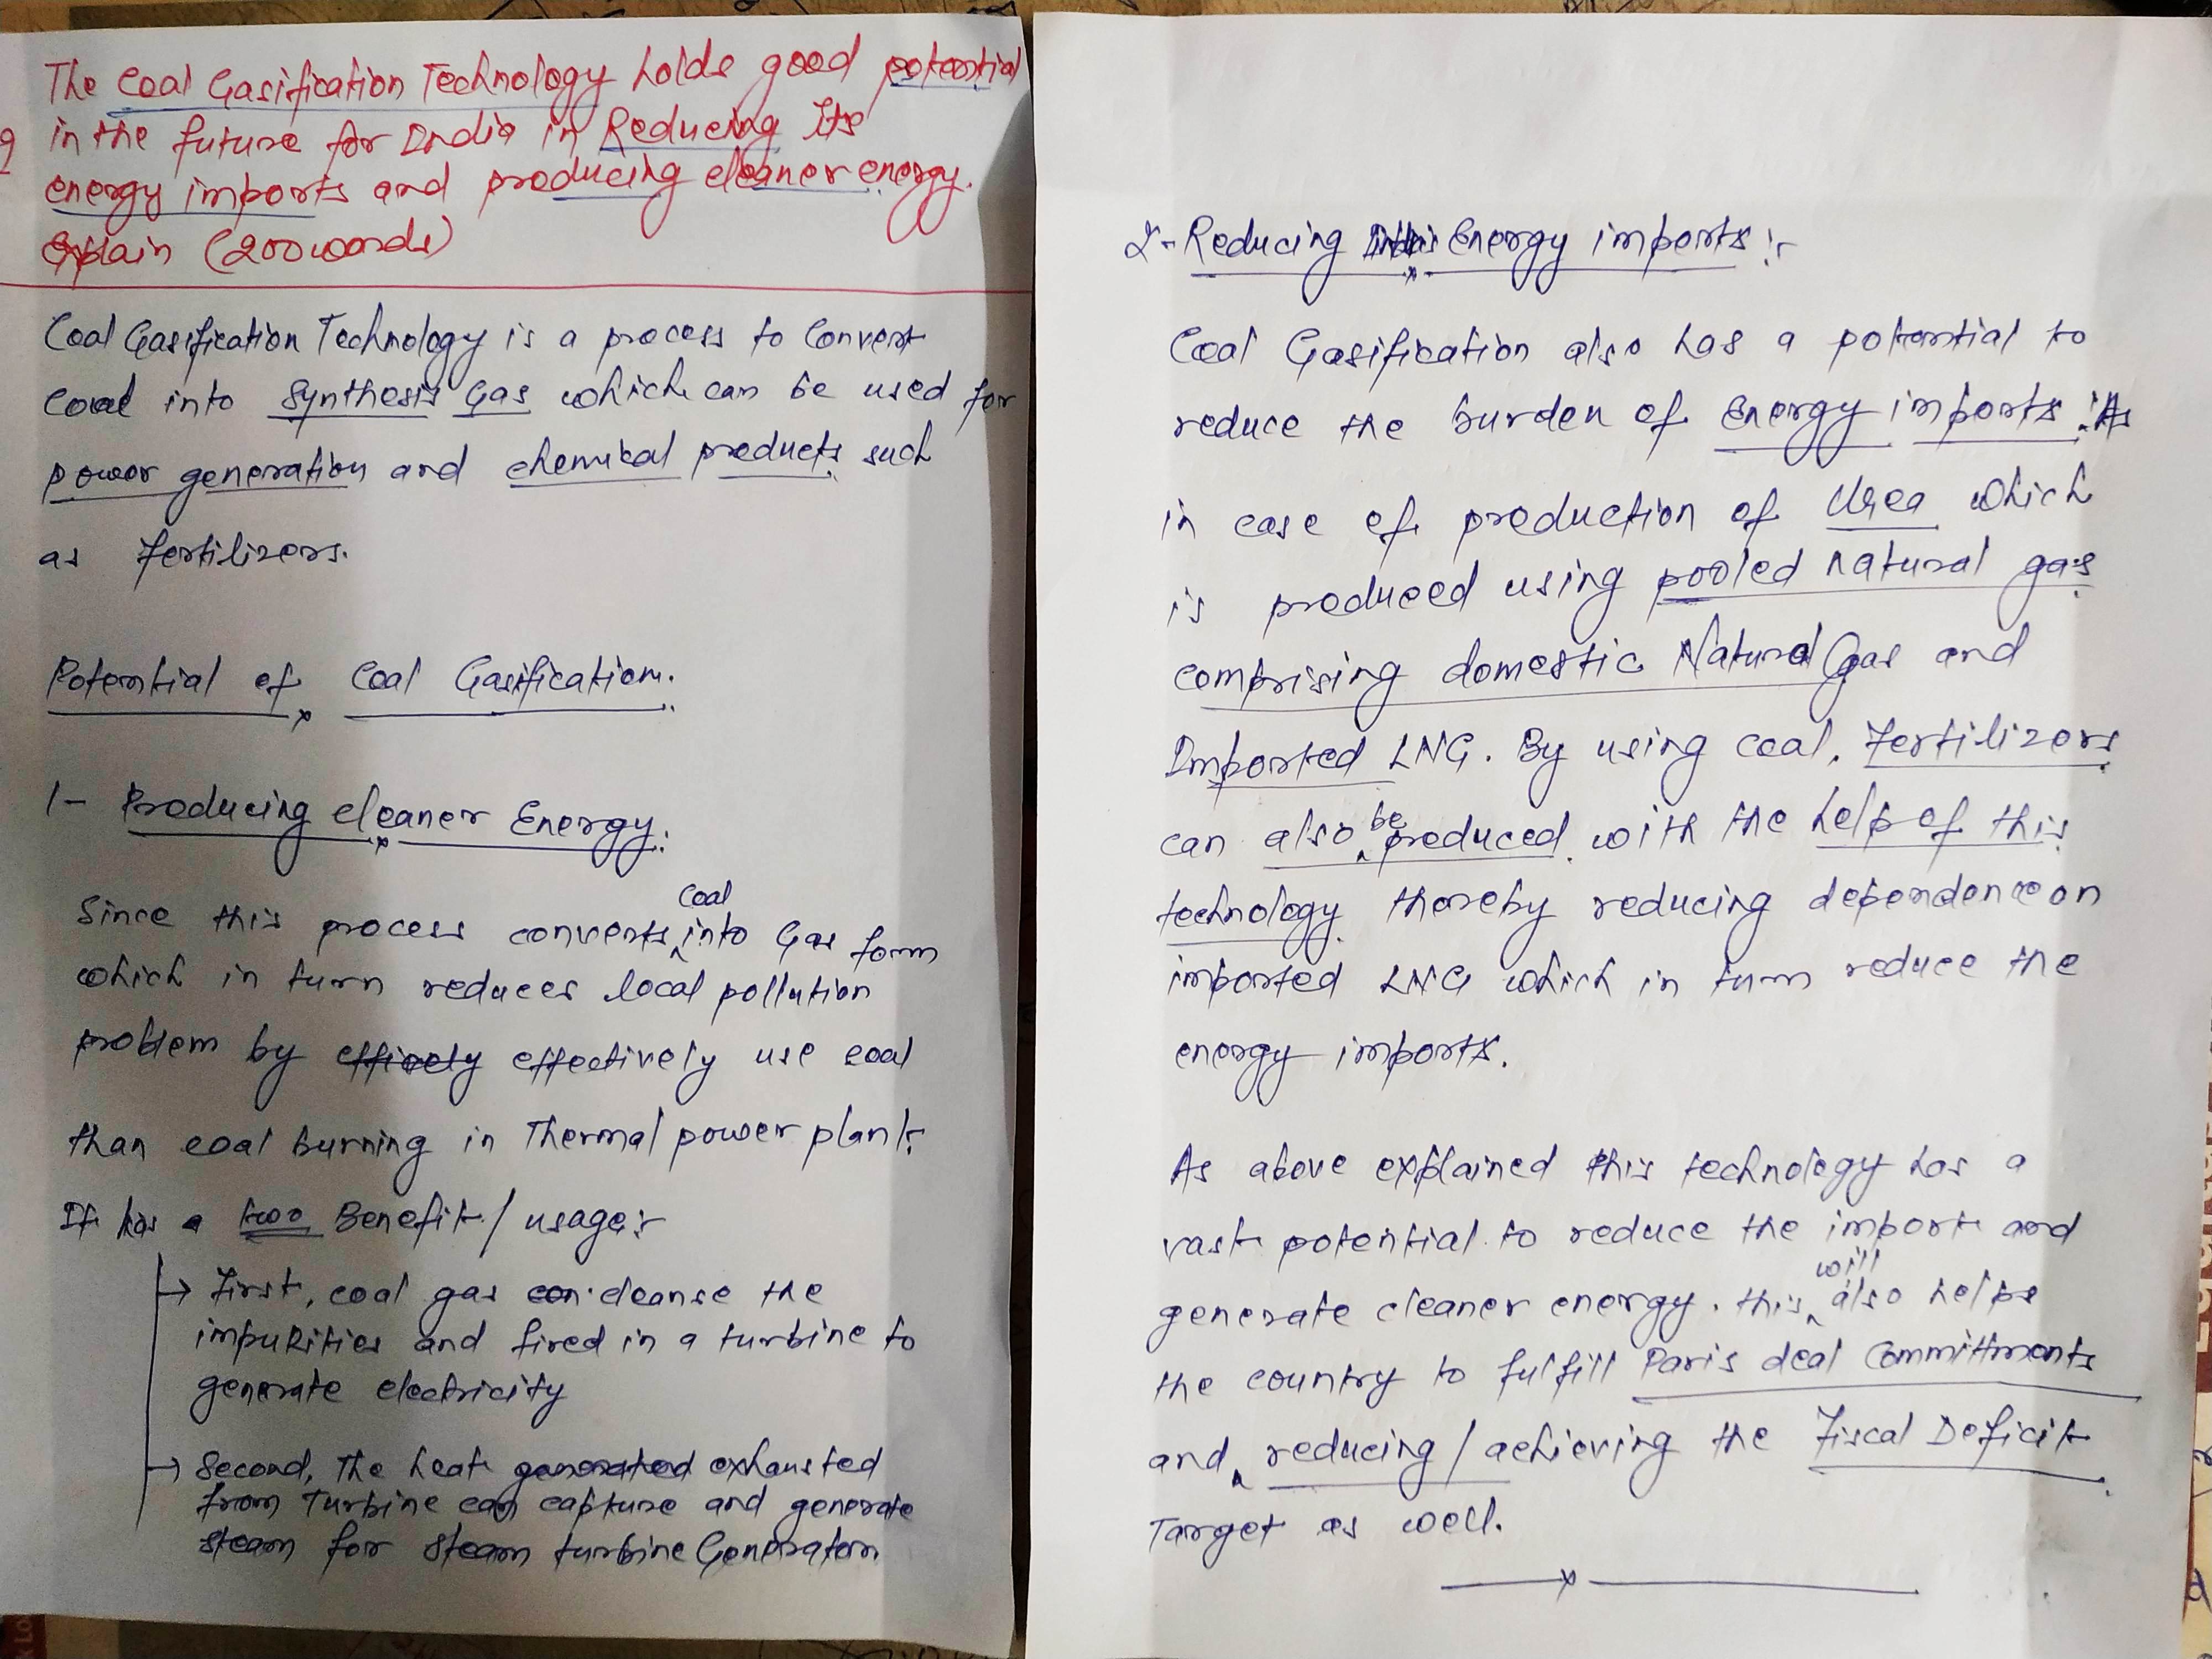 The Coal Gasification Technology holds good potential
in the future for India in Reducing Its
energy imports and producing cleaner energy.
Explain (200 words)
Coal Gasification Technology is a process to Convert
Coal into Synthesis Gas which can be used for
power generation and chemical products such
as Fertilizers.
Potential of Coal Gasification:
1- Producing cleaner Energy:
Coal
Since this process converts into Gas form
which in turn reduces local pollution
problem by effively effectively use coal
than coal burning in Thermal power plant.
It has a two Benefit / usage:-
→ First, coal gas can cleanse the
impurities and fired in a turbine to
generate electricity
→ Second, The heat generated exhausted
from Turbine can capture and generate
steam for steam turbine Generator.
2- Reducing Energy imports:-
Coal Gasification also has a potential to
reduce the burden of Energy imports. As
in case of production of Urea which
is produced using pooled natural gas
comprising domestic Natural Gas and
Imported LNG. By using coal, Fertilizers
can also be produced with the help of this
technology thereby reducing dependence on
imported LNG which in turn reduce the
energy imports.
As above explained this technology has a
vast potential to reduce the import and
will
generate cleaner energy. this also helps
the country to fulfill Paris deal Committments
and reducing / achieving the Fiscal Deficit
Target as well.